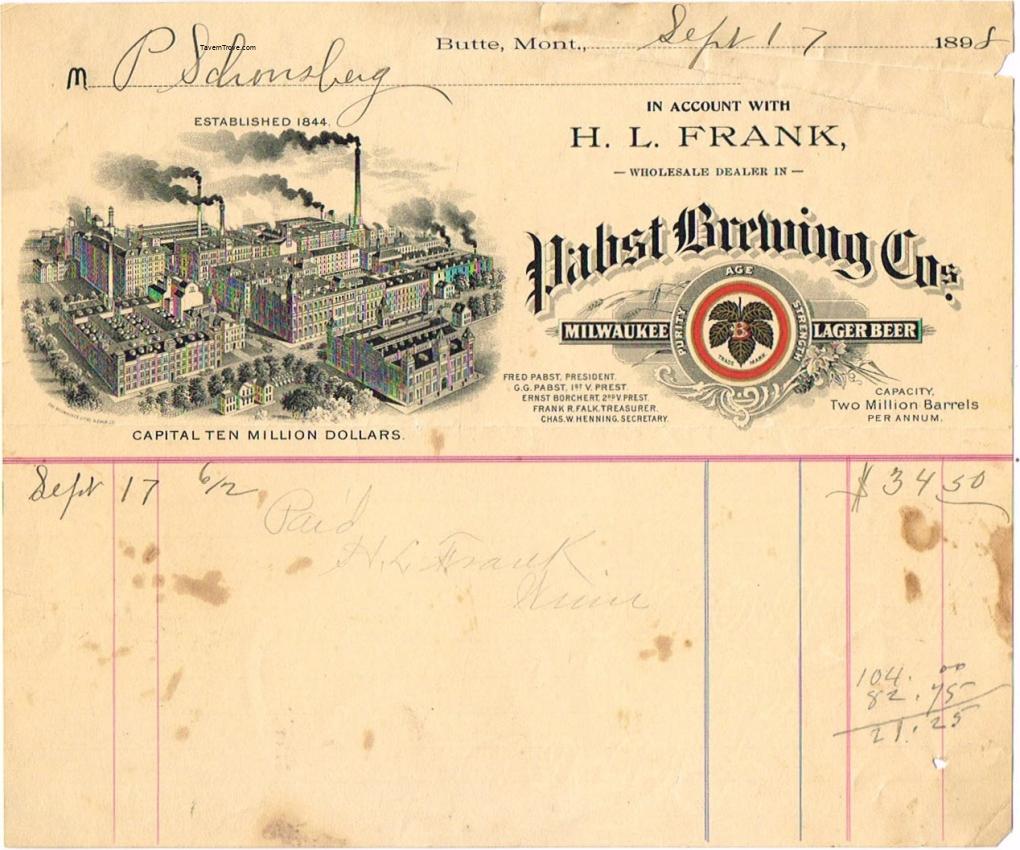 TavernTrove.com
Butte, Mont., Sept 17 1898
M P Schonsberg
IN ACCOUNT WITH
H. L. FRANK,
— WHOLESALE DEALER IN —
ESTABLISHED 1844.
Pabst Brewing Cos.
AGE
PURITY
STRENGTH
MILWAUKEE
B
LAGER BEER
TRADE MARK
FRED PABST, PRESIDENT.
G.G. PABST, 1ST V. PREST.
ERNST BORCHERT, 2ND V PREST.
FRANK R. FALK, TREASURER.
CHAS. W. HENNING, SECRETARY.
CAPACITY,
Two Million Barrels
PER ANNUM.
CAPITAL TEN MILLION DOLLARS.
Sept 17 6/2 $34 50
Paid
H. L. Frank
104.00
82.75
21.25